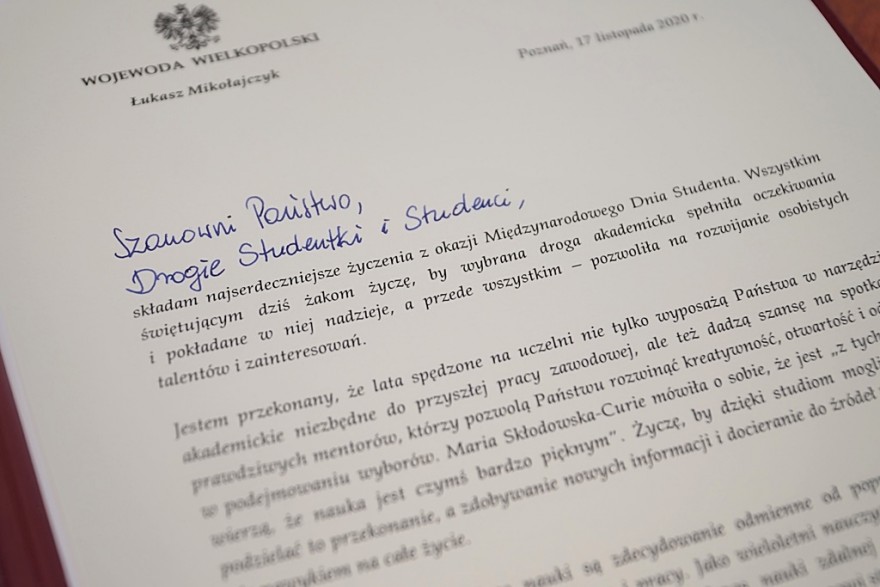 WOJEWODA WIELKOPOLSKI
Łukasz Mikołajczyk
Poznań, 17 listopada 2020 r.
Szanowni Państwo,
Drogie Studentki i Studenci,
składam najserdeczniejsze życzenia z okazji Międzynarodowego Dnia Studenta. Wszystkim
świętującym dziś żakom życzę, by wybrana droga akademicka spełniła oczekiwania
i pokładane w niej nadzieje, a przede wszystkim – pozwoliła na rozwijanie osobistych
talentów i zainteresowań.
Jestem przekonany, że lata spędzone na uczelni nie tylko wyposażą Państwa w narzędzi
akademickie niezbędne do przyszłej pracy zawodowej, ale też dadzą szansę na spotka
prawdziwych mentorów, którzy pozwolą Państwu rozwinąć kreatywność, otwartość i od
w podejmowaniu wyborów. Maria Skłodowska-Curie mówiła o sobie, że jest „z tych
wierzą, że nauka jest czymś bardzo pięknym”. Życzę, by dzięki studiom mogli
podzielać to przekonanie, a zdobywanie nowych informacji i docieranie do źródeł
na całe życie.
nauki są zdecydowanie odmienne od pop
pracy. Jako wieloletni nauczy
nauki zdalnej